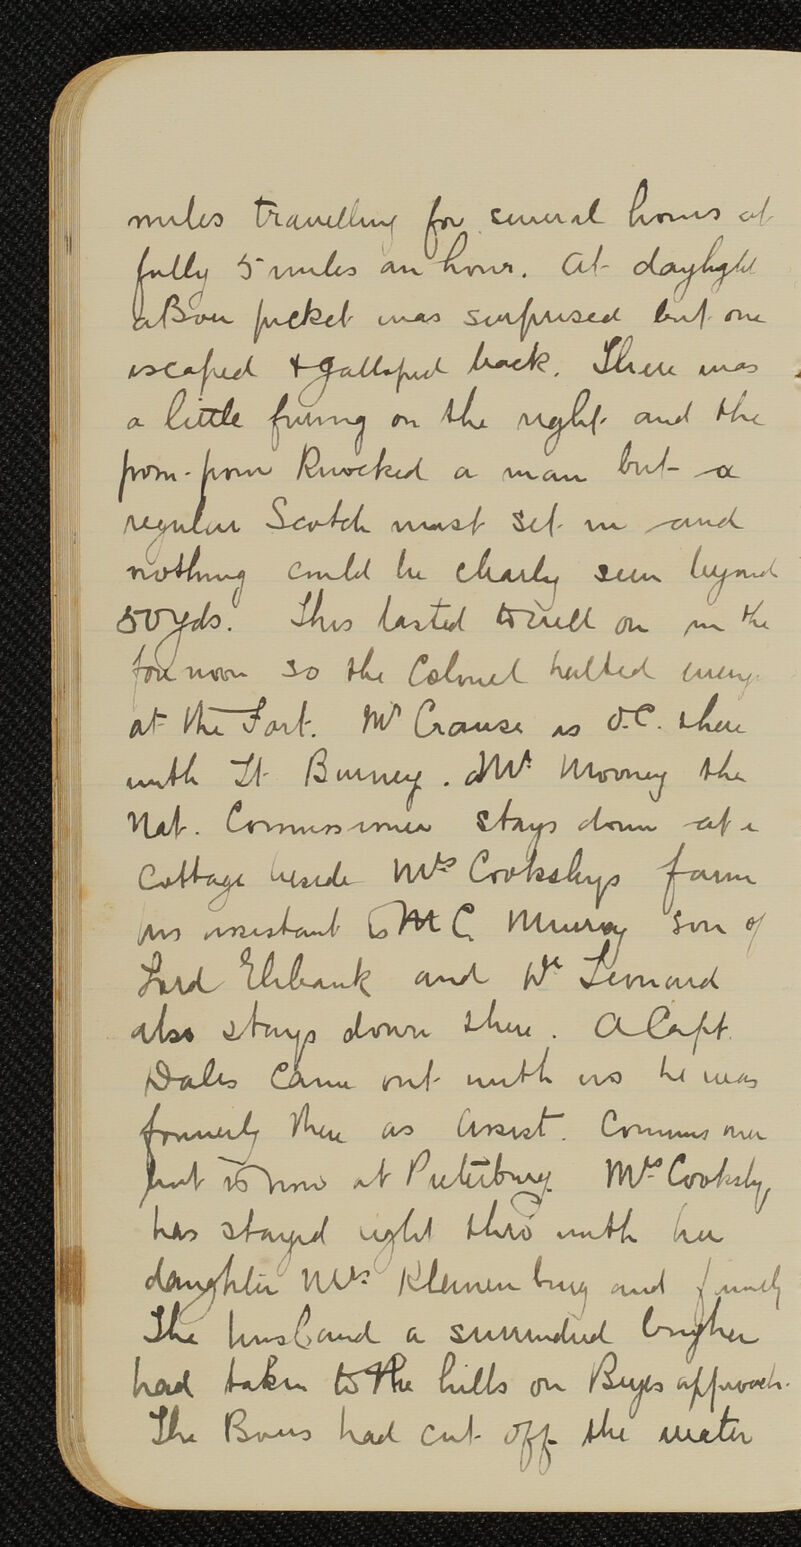 miles travelling for several hours at
fully 5 miles an hour. At daylight
a Boer picket was surprised but one
escaped & galloped back. There was
a little firing on the right and the
pom-pom knocked a man but a
regular Scotch mist set in and
nothing could be clearly seen beyond
50 yds. This lasted to well on in the
forenoon so the Colonel halted
at the Fort. Mr Crause is O.C. there
with Lt Burney. Mr Mooney the
Nat. Commissioner stays down at a
cottage beside Mrs Cookslys farm
his assistant is Mr C. Murray son of
Lord Elibank and Dr Leonard
also stays down there. A Capt.
Dales came out with us he was
formerly there as Assist. Commissioner
but is now at Pietersburg. Mrs Cooksly
has stayed right thro with her
daughter Mrs Kleinenburg and family
The husband a surrendered burgher
had taken to the hills on Beyers approach.
The Boers had cut off the water